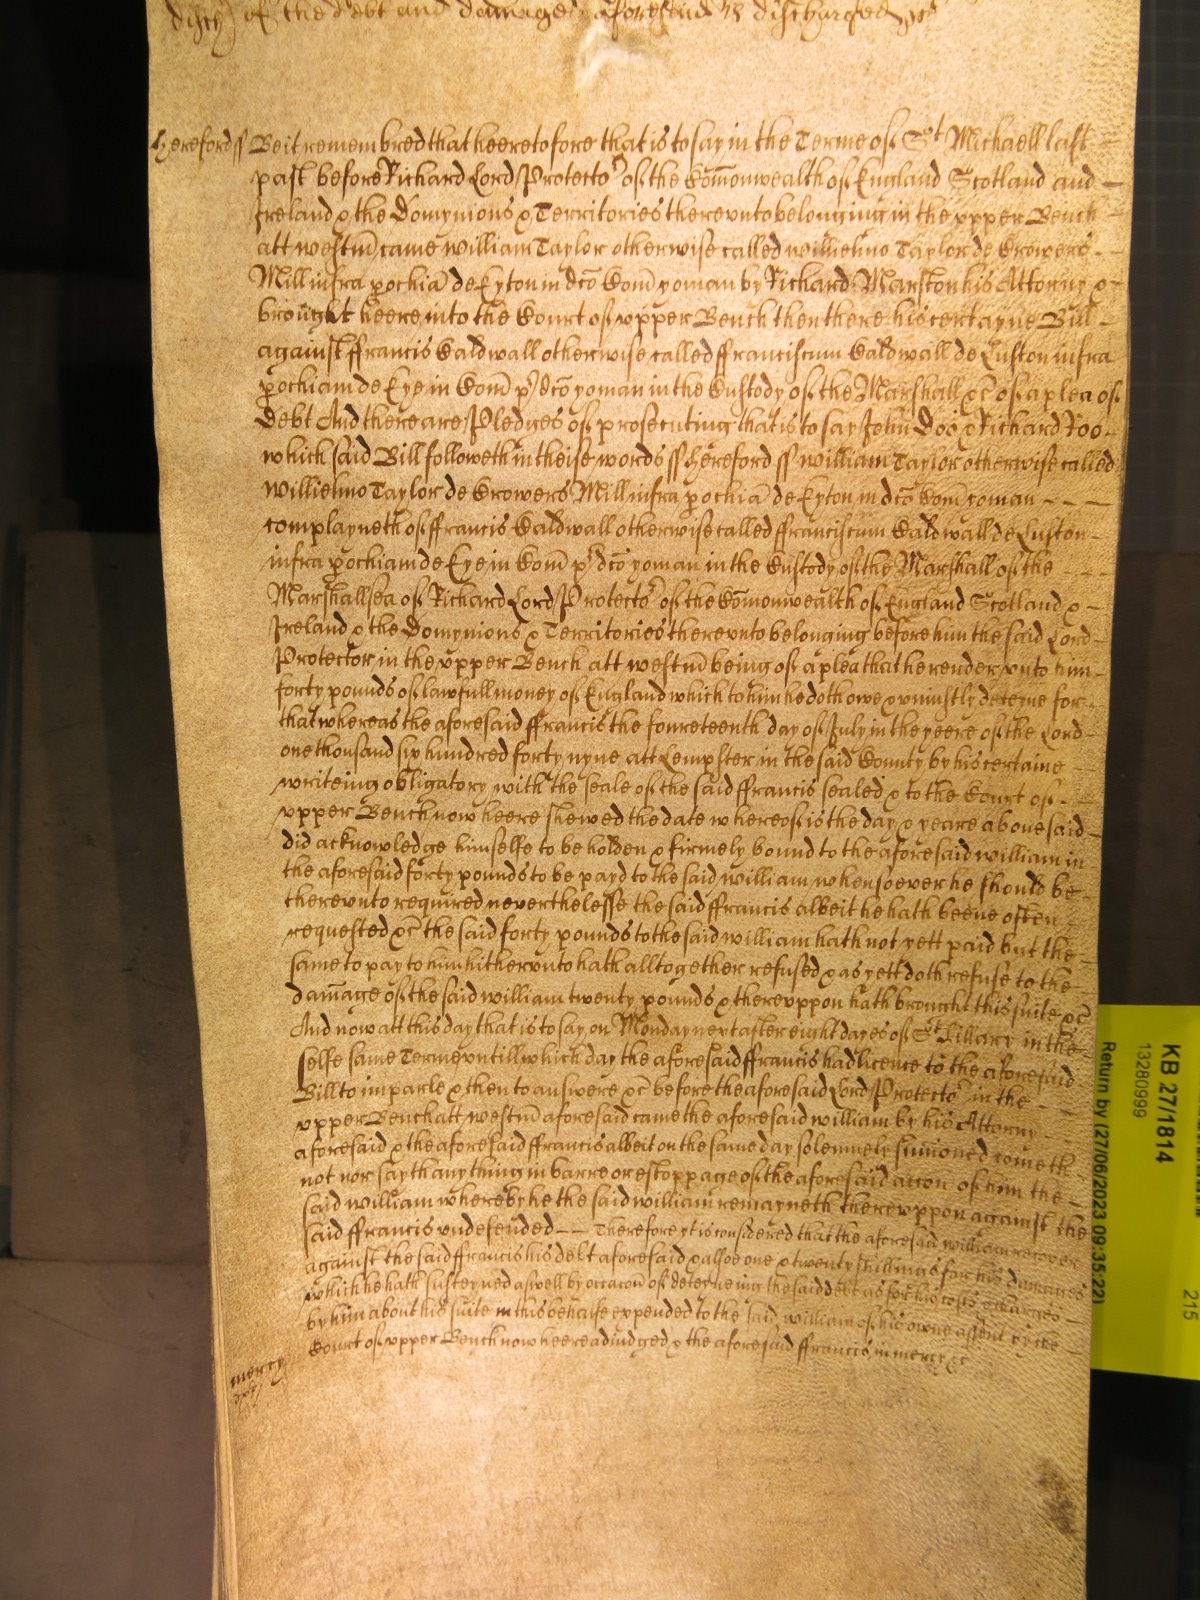 of the debt and damages aforesaid is discharged &c
Hereford ss Be it remembred that heeretofore that is to say in the Terme of St Michaell last
past before Richard Lord Protector of the Com̄onwealth of England Scotland and
Ireland & the Domynions & Territories therevnto belonging in the vpper Bench
att westm̄ came William Taylor otherwise called willielmo Taylor de Crowers
Mill infra pochiā de Eyton in dc̄o Com̄ yoman by Richard Marston his Attorny &
brought heere into the Court of vpper Bench then there his certayne Bill
against ffrancis Caldwall otherwise called ffranciscum Caldwall de Luston infra
pochiam de Eye in Com̄ p̄dc̄o yoman in the Custody of the Marshall &c̄ of a plea of
debt And there are Pledges of prosecuting that is to say John Doo & Richard Roo
which said Bill followeth in theise words ss Hereford ss william Taylor otherwise called
Willielmo Taylor de Crowers Mill infra pochiā de Eyton in dc̄o Com̄ yoman
complayneth of ffrancis Caldwall otherwise called ffranciscum Caldwall de Luston
infra pochiam de Eye in Com̄ p̄dc̄o yoman in the Custody of the Marshall of the
Marshallsea of Richard Lord Protector of the Com̄onwealth of England Scotland &
Ireland & the Domynions & Territories therevnto belonging before him the said Lord
Protector in the vpper Bench att westm̄ being of a plea that he render vnto him
forty pounds of lawfull money of England which to him he doth owe & vniustly deteine for
that whereas the aforesaid ffrancis the foureteenth day of July in the yeere of the Lord
one thousand six hundred forty nyne att Lempster in the said County by his certaine
writeing obligatory with the seale of the said ffrancis sealed & to the Court of
vpper Bench now heere shewed the date whereof is the day & yeare abouesaid
did acknowledge himselfe to be holden & firmely bound to the aforesaid william in
the aforesaid forty pounds to be payd to the said william whensoever he should be
therevnto required neverthelesse the said ffrancis albeit he hath beene often
requested &c̄ the said forty pounds to the said william hath not yett paid but the
same to pay to him hithervnto hath alltogether refused & as yett doth refuse to the
dam̄age of the said william twenty pounds & therevppon hath brought this suite &c̄
And now att this day that is to say on Monday next after eight dayes of St Hillary in the
selfe same Terme vntill which day the aforesaid ffrancis had licence to the aforesaid
Bill to imparle & then to answere &c̄ before the aforesaid Lord Protector in the
vpper Bench att westm̄ aforesaid came the aforesaid william by his Attorny
aforesaid & the aforesaid ffrancis albeit on the same day solemnely sum̄oned cometh
not nor sayth anything in barre or estoppage of the aforesaid ac̄on of him the
said william whereby he the said william remayneth therevppon against the
said ffrancis vndefended Therefore yt is considered that the aforesaid william recover
against the said ffrancis his debt aforesaid & alsoe one & twenty shillings for his damages
which he hath susteyned aswell by occac̄on of deteyneing the said debt as for his costs & charges
by him about his suite in this behalfe expended to the said william of his owne assent by the
Court of vpper Bench now heere adiudged & the aforesaid ffrancis in mercy &c
mercy
KB 27/1814
13280999
Return by (27/06/2023 09:35:22)
215